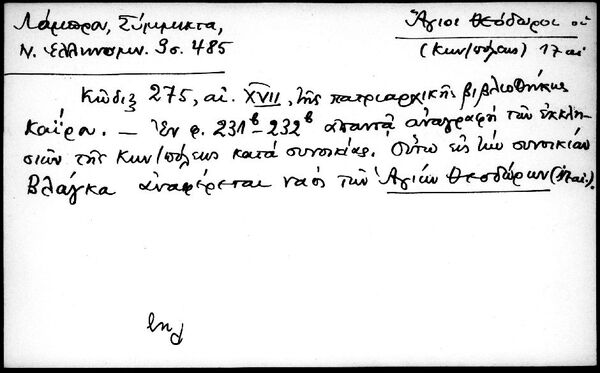 Λάμπρου, Σύμμικτα,
Ν. Ἑλληνομν. 9σ. 485
Ἅγιοι Θεόδωροι οἱ
(Κων/πόλεως) 17 αἰ
Κῶδιξ 275, αἰ. XVII, τῆς πατριαρχικῆς βιβλιοθήκης
Καΐρου. — Ἐν φ. 231β-232β ἀπαντᾷ ἀναγραφὴ τῶν ἐκκλη-
σιῶν τῆς Κων/πόλεως κατὰ συνοικίας. Οὕτω εἰς τὴν συνοικίαν
Βλάγκα ἀναφέρεται ναὸς τῶν Ἁγίων Θεοδώρων